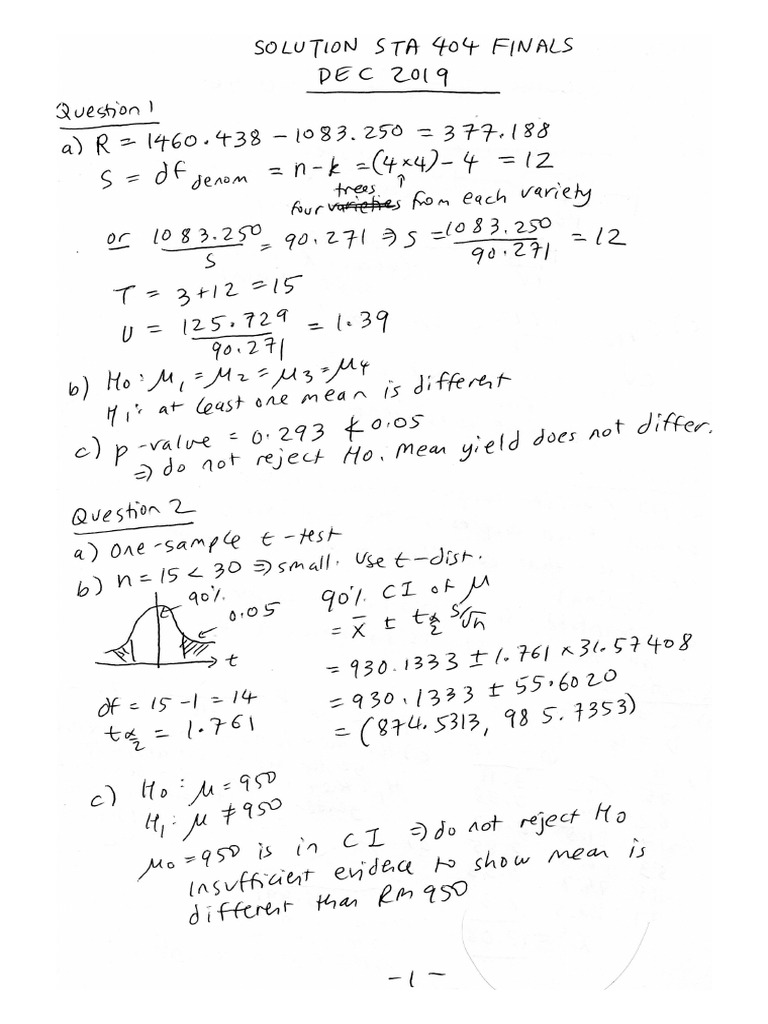 SOLUTION STA 404 FINALS
DEC 2019
Question 1
a) R = 1460.438 - 1083.250 = 377.188
S = df denom = n-k = (4×4) - 4 = 12
four trees from each variety
or 1083.250/S = 90.271 ⇒ S = 1083.250/90.271 = 12
T = 3+12 = 15
U = 125.729/90.271 = 1.39
b) H0: μ1 = μ2 = μ3 = μ4
H1: at least one mean is different
c) p-value = 0.293 ≮ 0.05
⇒ do not reject H0. Mean yield does not differ.
Question 2
a) One-sample t-test
b) n = 15 < 30 ⇒ small. Use t-dist.
90%
0.05
t
df = 15-1 = 14
tα/2 = 1.761
90% CI of μ
= x̄ ± tα/2 s/√n
= 930.1333 ± 1.761 × 31.57408
= 930.1333 ± 55.6020
= (874.5313, 985.7353)
c) H0: μ = 950
H1: μ ≠ 950
μ0 = 950 is in CI ⇒ do not reject H0
Insufficient evidence to show mean is
different than RM 950
-1-